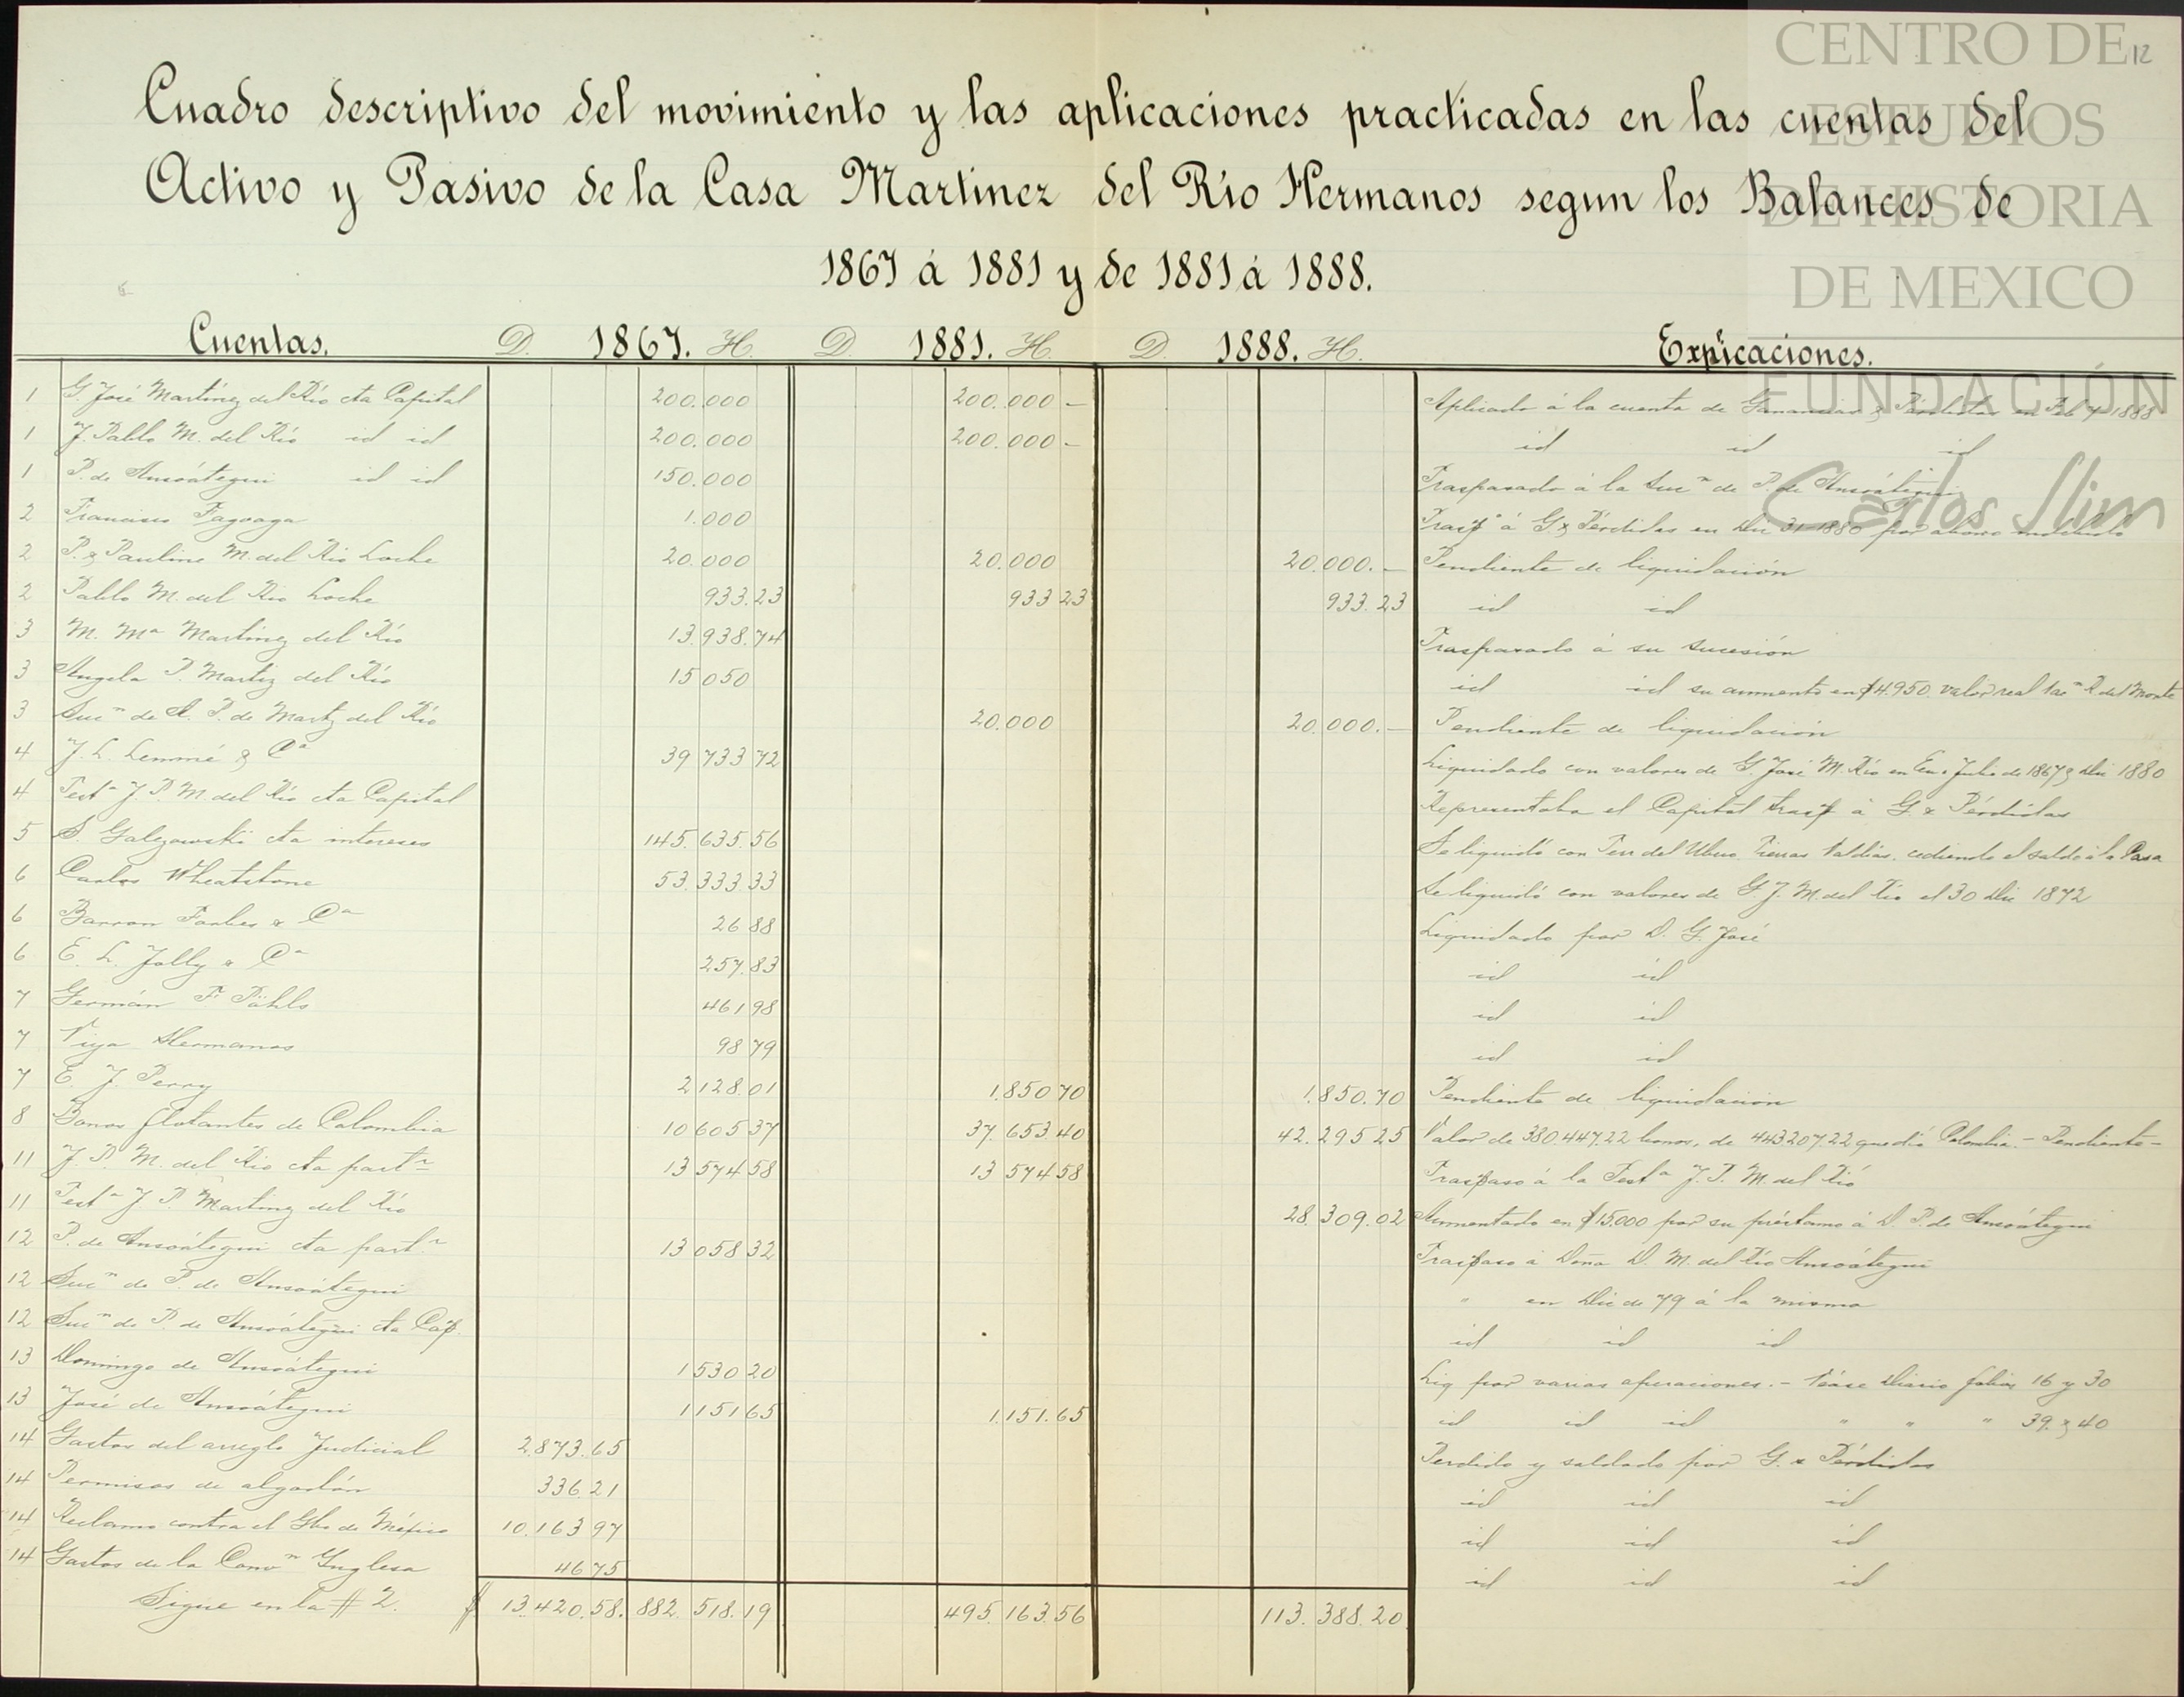 CENTRO DE
ESTUDIOS
DE HISTORIA
DE MEXICO
FUNDACIÓN
Carlos Slim
12
Cuadro descriptivo del movimiento y las aplicaciones practicadas en las cuentas del
Activo y Pasivo de la Casa Martinez del Río Hermanos segun los Balances de
1867 á 1881 y de 1881 á 1888.
Cuentas. D. 1867. H. D. 1881. H. D. 1888. H. Expicaciones.
1 G. José Martínez del Río cta Capital 200.000 200.000 - Aplicado á la cuenta de Ganancias & Pérdidas en 1888
1 J. Pablo M. del Río id id 200.000 200.000 - id id id
1 P. de Ansoátegui id id 150.000 Traspasado á la Sucn de P. de Ansoátegui
2 Francisco Fagoaga 1.000 Trasp° á G. & Pérdidas en Dic 31 1880 por abono indebido
2 P. & Paulino M. del Rio Loche 20.000 20.000 20.000.- Pendiente de liquidación
2 Pablo M. del Rio Loche 933.23 933 23 933.23 id id
3 M. Ma Martínez del Río 13.938.74 Traspasado á su sucesión
3 Angela P. Martiz del Río 15 050 id id su aumento en $4.950. valor real 1 acn R. del Monte
3 Sucn de A. P. de Martz del Río 20.000 20.000.- Pendiente de liquidación
4 J. L. Lemmé & Ca 39 733 72 Liquidado con valores de G. José M. Río en Eno Julio de 1867 & Dic 1880
4 Testa J. P. M. del Río cta Capital Representaba el Capital trasp á G. & Pérdidas
5 S. Galezowski cta intereses 145.635.56 Se liquidó con Terr del Ubero Tierras Valdías, cediendo el saldo á la Casa
6 Carlos Wheatstone 53.333 33 Se liquidó con valores de G J. M. del Río el 30 Dic 1872
6 Barron Forbes & Ca 26 88 Liquidado por D. G. José
6 E. L. Jolly & Ca 257.83 id id
7 Germán F. Pöhls 461 98 id id
7 Viya Hermanos 98 79 id id
7 E. J. Perry 2 128.01 1.850 70 1.850.70 Pendiente de liquidación
8 Bonos flotantes de Colombia 10 605 37 37.653 40 42.295 25 Valor de 380.447.22 bonos, de 443207.22 que dió Colombia. - Pendiente -
11 J P. M. del Rio cta partr 13 574 58 13 574 58 Traspaso á la Testa J. P. M. del Río
11 Testa J P. Martinez del Río 28.309.02 Aumentado en $15.000 por su préstamo á D. P. de Ansoátegui
12 P. de Ansoátegui cta partr 13 058 32 Traspaso á Doña D. M. del Río Ansoátegui
12 Sucn de P. de Ansoátegui " en Dic de 79 á la misma
12 Sucn de P. de Ansoátegui cta Cap. id id id
13 Domingo de Ansoátegui 1 530 20 Liq por varias operaciones. - Véase Diario folios 16 y 30
13 José de Ansoátegui 1 151 65 1.151.65 id id id " " " 39. & 40
14 Gastos del arreglo Judicial 2.873.65 Perdido y saldado por G. & Pérdidas
14 Permisos de algodón 336 21 id id id
14 Reclamo contra el Gbo de México 10.163 97 id id id
14 Gastos de la Convn Inglesa 46 75 id id id
Sigue en la # 2. $ 13.420.58. 882.518.19 495.163.56 113.388.20